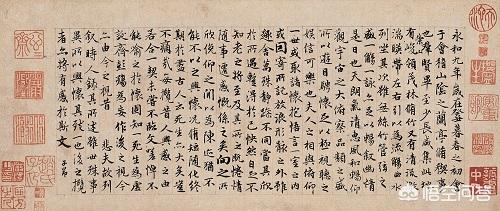 永和九年歲在癸丑暮春之初會
于會稽山陰之蘭亭脩稧事
也群賢畢至少長咸集此地
有崇山峻領茂林脩竹又有清流激
湍暎帶左右引以為流觴曲水
列坐其次雖無絲竹管弦之
盛一觴一詠亦足以暢敘幽情
是日也天朗氣清惠風和暢仰
觀宇宙之大俯察品類之盛
所以遊目騁懷足以極視聽之
娛信可樂也夫人之相與俯仰
一世或取諸懷抱悟言一室之內
或因寄所託放浪形骸之外雖
趣舍萬殊靜躁不同當其欣
於所遇蹔得於己怏然自足不
知老之將至及其所之既惓情
隨事遷感慨係之矣向之所
欣俛仰之閒以為陳迹猶不
能不以之興懷況脩短隨化終
期於盡古人云死生亦大矣豈
不痛哉每攬昔人興感之由
若合一契未嘗不臨文嗟悼不
能喻之於懷固知一死生為虛
誕齊彭殤為妄作後之視今
亦由今之視昔悲夫故列
敘時人錄其所述雖世殊事
異所以興懷其致一也後之攬
者亦將有感於斯文
子昂